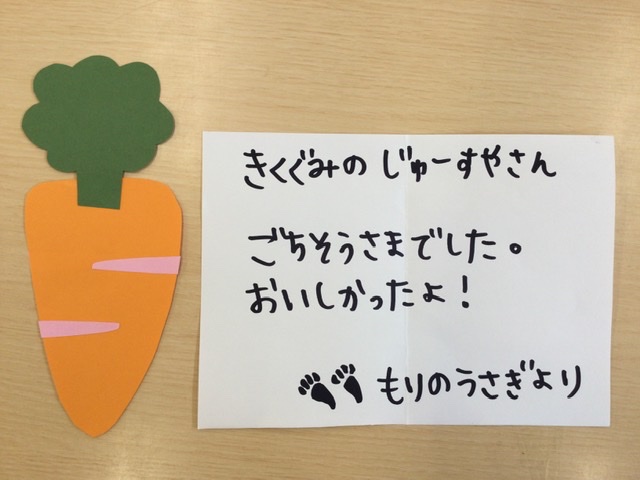 きくぐみの じゅーすやさん
ごちそうさまでした。
おいしかったよ!
もりのうさぎより